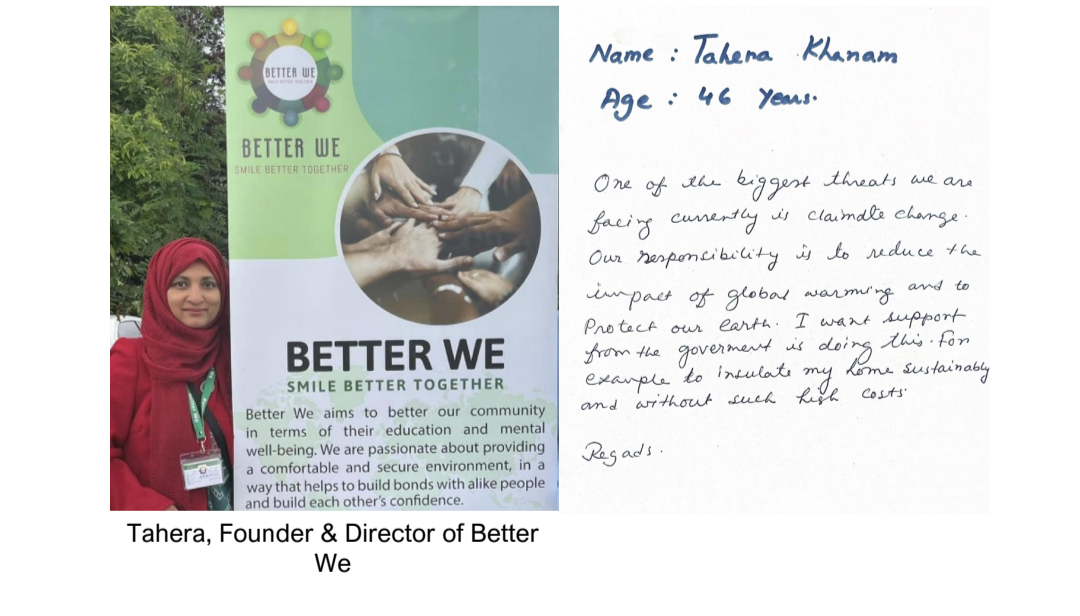 BETTER WE
SMILE BETTER TOGETHER
BETTER WE
SMILE BETTER TOGETHER
BETTER WE
SMILE BETTER TOGETHER
Better We aims to better our community
in terms of their education and mental
well-being. We are passionate about providing
a comfortable and secure environment, in a
way that helps to build bonds with alike people
and build each other's confidence.
Tahera, Founder & Director of Better
We
Name : Tahera Khanam
Age : 46 Years.
One of the biggest threats we are
facing currently is claimdte change.
Our responsibility is to reduce the
impact of global warming and to
Protect our earth. I want support
from the goverment is doing this. For
example to insulate my home sustainably
and without such high costs.
Regads.